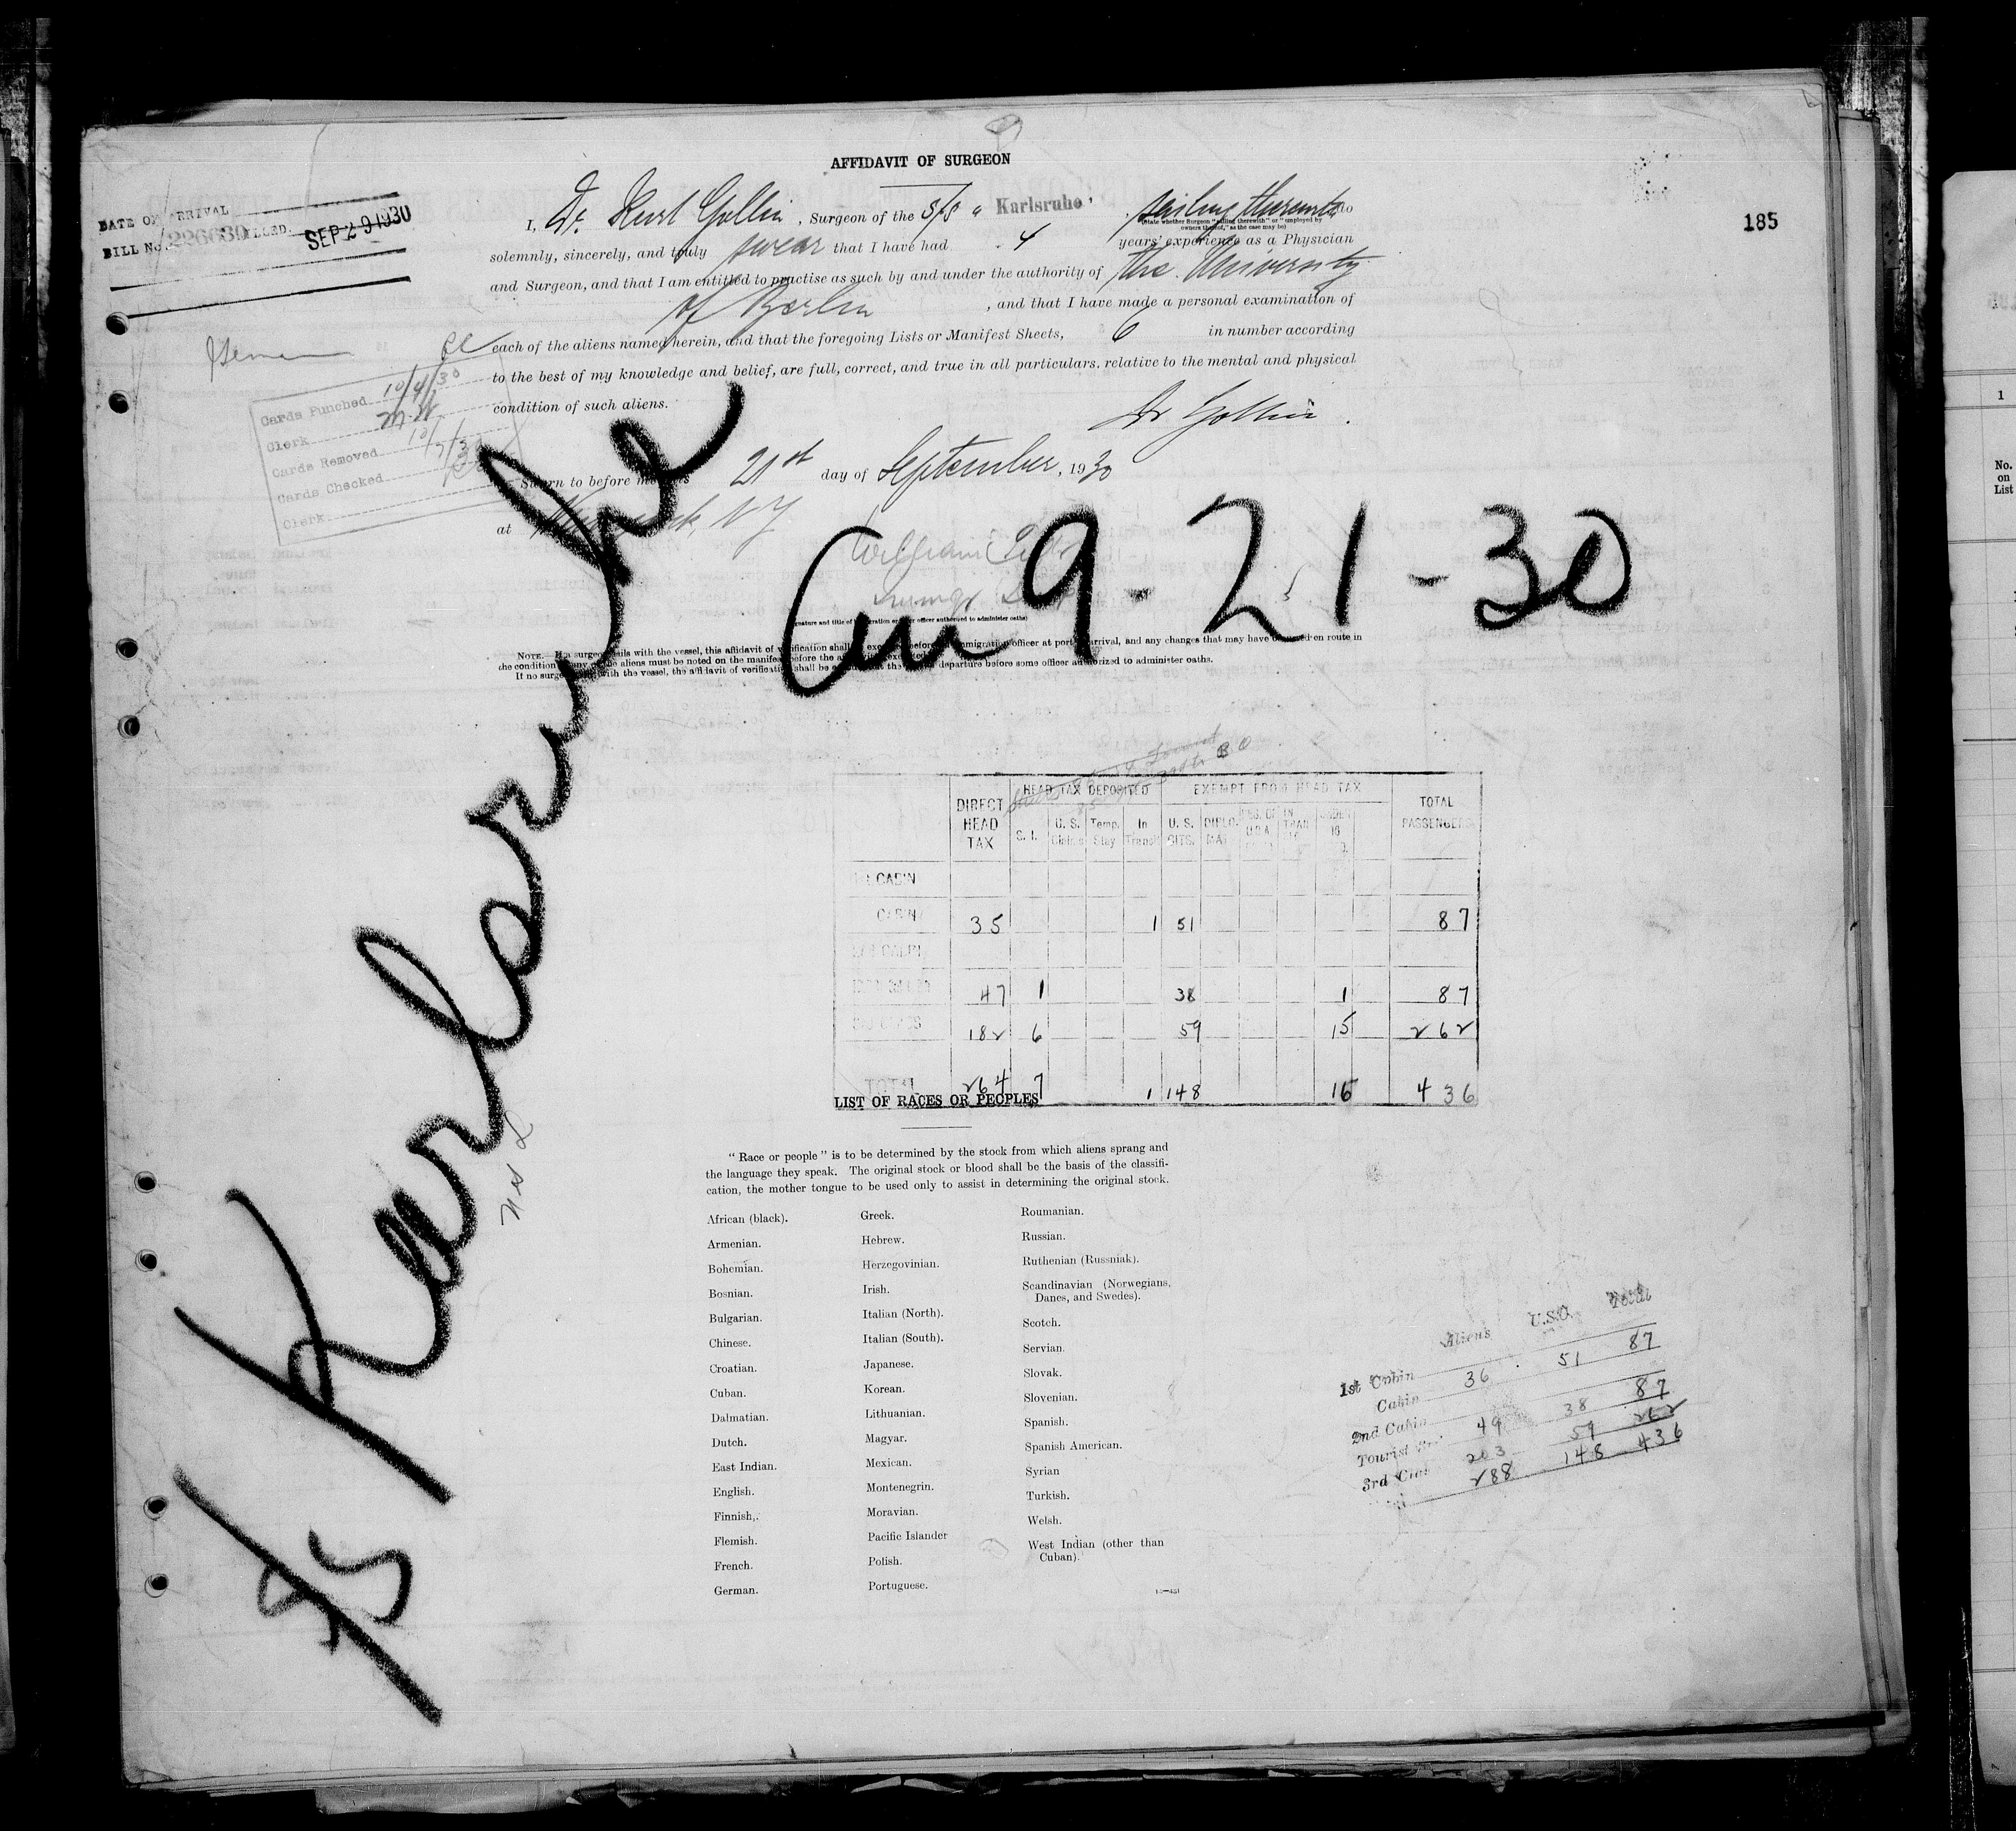 AFFIDAVIT OF SURGEON
DATE OF ARRIVAL
BILL No. 226630 BILLED. SEP 29 1930
185
I, Dr. Kurt Gollin, Surgeon of the S/S " Karlsruhe" , sailing therewith do
(State whether Surgeon "sailing therewith" or "employed by
owners thereof," as the case may be)
solemnly, sincerely, and truly swear that I have had 4 years' experience as a Physician
and Surgeon, and that I am entitled to practise as such by and under the authority of the University
of Berlin , and that I have made a personal examination of
each of the aliens named herein, and that the foregoing Lists or Manifest Sheets, 6 in number according
to the best of my knowledge and belief, are full, correct, and true in all particulars, relative to the mental and physical
condition of such aliens.
Dr Gollin.
Cards Punched 10/4/30
Clerk M W
Cards Removed 10/7/30
Cards Checked
Clerk
Sworn to before me this 21st day of September, 1930
at New York, NY
William
(Signature and title of immigration or other officer authorized to administer oaths)
9-21-30
NOTE. If a surgeon sails with the vessel, this affidavit of verification shall be executed before the immigration officer at port of arrival, and any changes that may have occurred en route in
the condition of any of the aliens must be noted on the manifest before the affidavit is executed
If no surgeon sails with the vessel, the affidavit of verification shall be executed at the port of departure before some officer authorized to administer oaths.
S/S Karlsruhe
DIRECT HEAD TAX
HEAD TAX DEPOSITED
EXEMPT FROM HEAD TAX
TOTAL PASSENGERS
S. I. U. S. Claims Temp. Stay In Transit U. S. CITS. DIPLO- MAT UNDER 16
1st CABIN
CABIN 35 1 51 87
2nd CABIN
47 1 38 1 87
182 6 59 15 262
TOTAL 264 7 1 148 16 436
LIST OF RACES OR PEOPLES
" Race or people " is to be determined by the stock from which aliens sprang and
the language they speak. The original stock or blood shall be the basis of the classifi-
cation, the mother tongue to be used only to assist in determining the original stock.
African (black).
Armenian.
Bohemian.
Bosnian.
Bulgarian.
Chinese.
Croatian.
Cuban.
Dalmatian.
Dutch.
East Indian.
English.
Finnish.
Flemish.
French.
German.
Greek.
Hebrew.
Herzegovinian.
Irish.
Italian (North).
Italian (South).
Japanese.
Korean.
Lithuanian.
Magyar.
Mexican.
Montenegrin.
Moravian.
Pacific Islander
Polish.
Portuguese.
Roumanian.
Russian.
Ruthenian (Russniak).
Scandinavian (Norwegians,
Danes, and Swedes).
Scotch.
Servian.
Slovak.
Slovenian.
Spanish.
Spanish American.
Syrian
Turkish.
Welsh.
West Indian (other than
Cuban).
Aliens U.S.C. Total
1st Cabin
Cabin 36 51 87
2nd Cabin
Tourist 49 38 87
3rd Class 203 59 262
288 148 436
1
No.
on
List